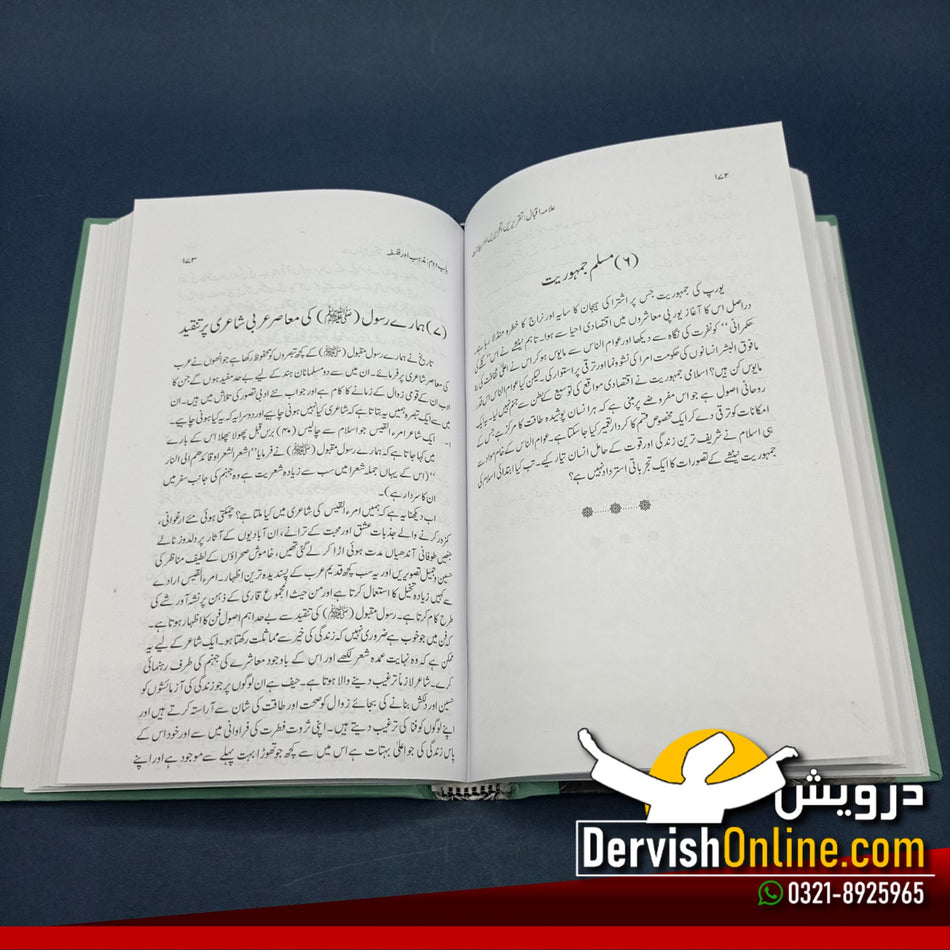 ۱۷۲
علامہ اقبال: تقریریں، تحریریں اور
(۶) مسلم جمہوریت
یورپ کی جمہوریت جس پر اشتراکی ہیجان کا سایہ اور نراج کا خطرہ منڈلا رہا ہے
دراصل اس کا آغاز یورپی معاشروں میں اقتصادی احیا سے ہوا۔ تاہم نیٹشے نے اس ''گلے کی
حکمرانی'' کو نفرت کی نگاہ سے دیکھا اور عوام الناس سے مایوس ہو کر اس نے اعلیٰ ثقافت کی بنیاد
مافوق البشر انسانوں کی حکومت امرا کی نشوونما اور ترقی پر استوار کی۔ لیکن کیا عوام الناس اس قدر
مایوس کن ہیں؟ اسلامی جمہوریت نے اقتصادی مواقع کی توسیع کے بطن سے جنم نہیں لیا۔ یہ ایک
روحانی اصول ہے جو اس مفروضے پر مبنی ہے کہ ہر انسان پوشیدہ طاقت کا مرکز ہے جس کے
امکانات کو ترقی دے کر ایک مخصوص قسم کا کردار تعمیر کیا جا سکتا ہے۔ عوام الناس کے خام مواد سے
ہی اسلام نے شریف ترین زندگی اور قوت کے حامل انسان تیار کیے۔ تب کیا ابتدائی اسلام کی
جمہوریت نیٹشے کے تصورات کا ایک تجرباتی استرداد نہیں ہے؟
باب دوم: مذہب اور فلسفہ
۱۷۳
(۷) ہمارے رسول (ﷺ) کی معاصر عربی شاعری پر تنقید
تاریخ نے ہمارے رسول مقبول (ﷺ) کے کچھ تبصروں کو محفوظ رکھا ہے جو انھوں نے عرب
کی معاصر شاعری پر فرمائے۔ ان میں سے دو مسلمانان ہند کے لیے بے حد مفید ہوں گے جن کا
ادب ان کے قومی زوال کے زمانے کا کام ہے اور جو اب نئے ادبی تصور کی تلاش میں ہیں۔ ان
میں سے ایک تبصرہ ہمیں یہ بتاتا ہے کہ شاعری کیا نہیں ہونی چاہیے اور دوسرا یہ کہ یہ کیا ہونی چاہیے۔
۱- ایک شاعر امرء القیس جو اسلام سے چالیس (۴۰) برس قبل پھولا پھلا اس کے بارے
میں کہا جاتا ہے کہ ہمارے رسول مقبول (ﷺ) نے فرمایا ''اشعر الشعراء و قائدھم الی النار
'' (اس کے یہاں جملہ شعرا میں سب سے زیادہ شعریت ہے وہ ہی جہنم کی جانب سفر میں
ان کا سردار ہے)۔
اب دیکھنا یہ ہے کہ ہمیں امرء القیس کی شاعری میں کیا ملتا ہے؟ چمکتی ہوئی مئے ارغوانی،
کمزور کرنے والے جذبات عشق اور محبت کے ترانے، ان آبادیوں کے آثار پر دلدوز نالے
جنھیں طوفانی آندھیاں مدت ہوئی اڑا کر لے گئی تھیں، خاموش صحراؤں کے لطیف مناظر کی
حسین و جمیل تصویریں اور یہ سب کچھ قدیم عرب کے پسندیدہ ترین اظہار۔ امرء القیس ارادے
سے کہیں زیادہ تخیل کا استعمال کرتا ہے اور من حیث المجموع قاری کے ذہن پر نشہ آور شے کی
طرح کام کرتا ہے۔ رسول مقبول (ﷺ) کی تنقید سے بے حد اہم اصول فن کا اظہار ہوتا ہے۔
کہ فن میں جو خوب ہے ضروری نہیں کہ زندگی کی خیر سے مماثلت رکھتا ہو۔ ایک شاعر کے لیے یہ
ممکن ہے کہ وہ نہایت عمدہ شعر لکھے اور اس کے باوجود معاشرے کی جہنم کی طرف رہنمائی
کرے۔ شاعر لازماً ترغیب دینے والا ہوتا ہے۔ حیف ہے ان لوگوں پر جو زندگی کی آزمائشوں کو
حسین اور دلکش بنانے کی بجائے زوال کو صحت اور طاقت کی شان سے آراستہ کرتے ہیں اور
اپنے لوگوں کو فنا کی ترغیب دیتے ہیں۔ اپنی ثروت فطرت کی فراوانی میں سے اور خود اس کے
پاس زندگی کی جو اعلیٰ بہتات ہے اس میں سے کچھ جو تھوڑا بہت پہلے سے موجود ہے اور اپنے
درویش
DervishOnline.com
0321-8925965